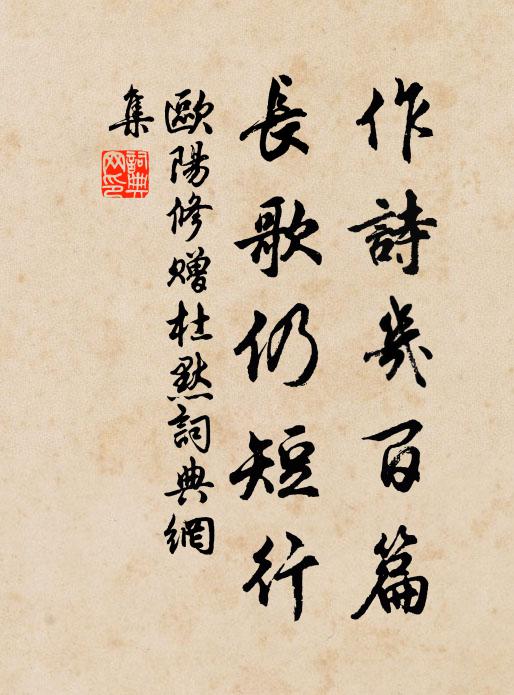 作詩幾百篇
長歌仍短行
歐陽修贈杜默詞典網
集
詞典網印